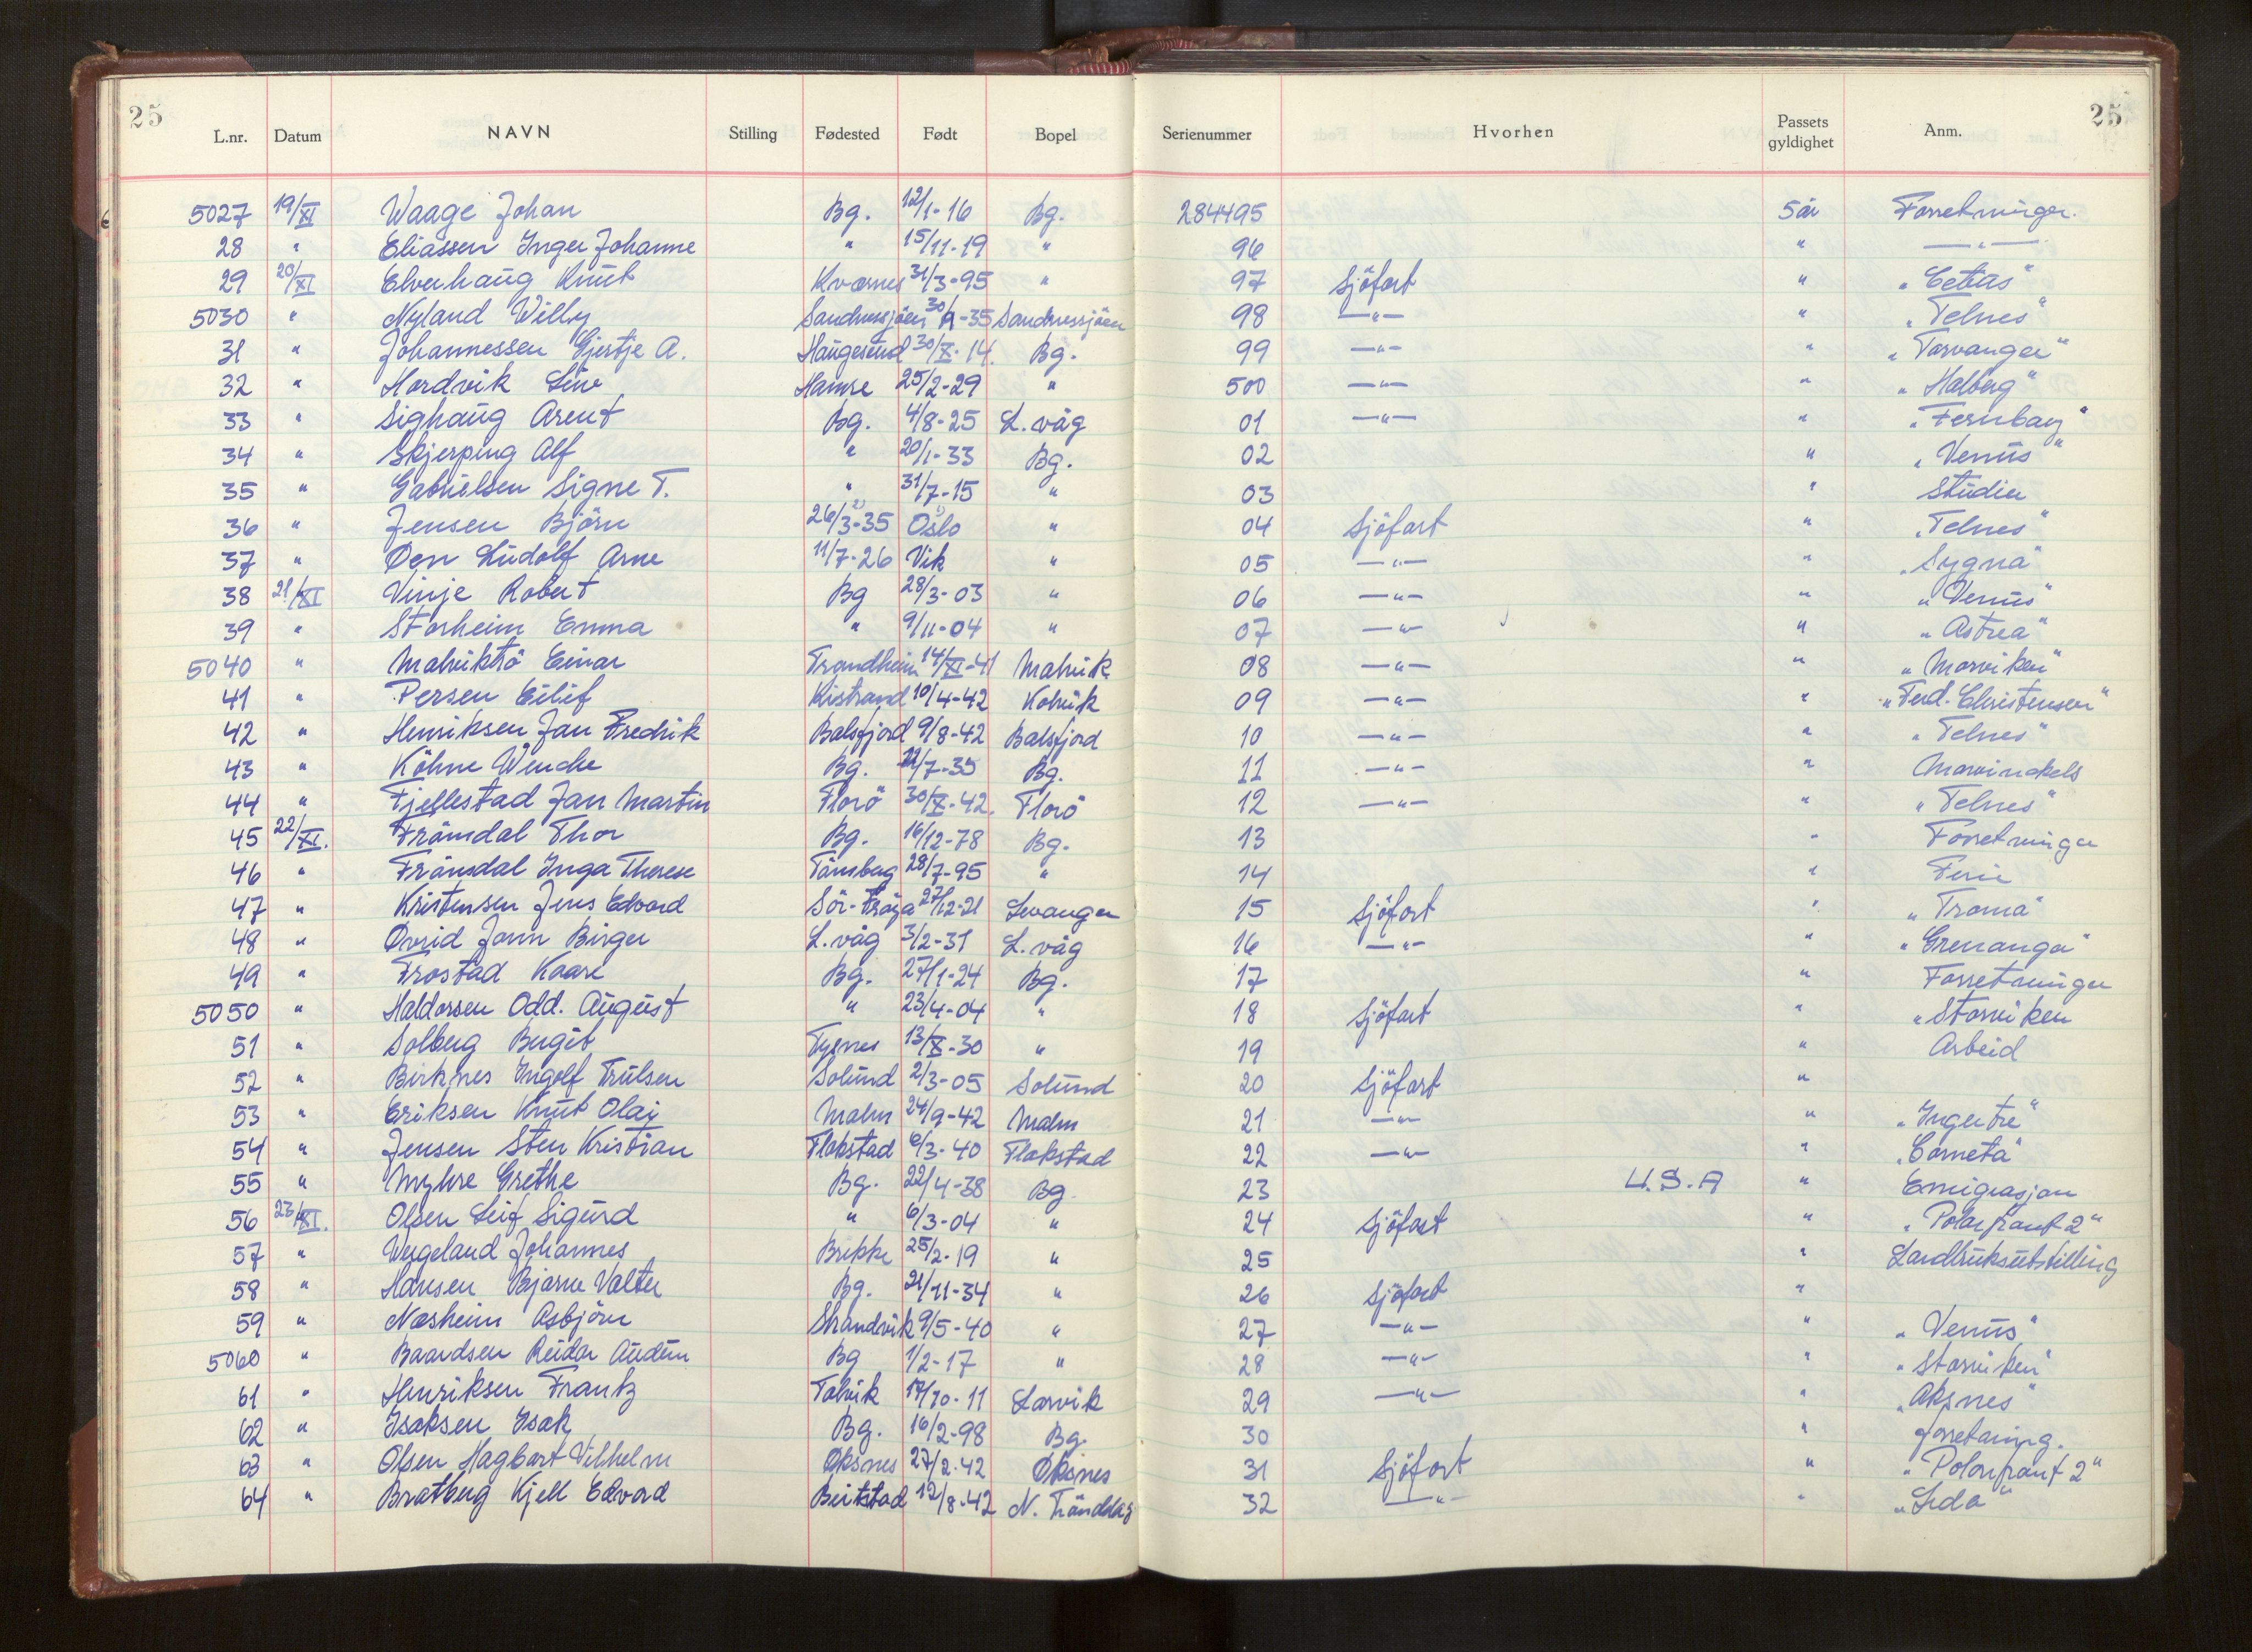 25 25
L.nr. Datum NAVN Stilling Fødested Født Bopel Serienummer Hvorhen Passets gyldighet Anm.
5027 19/XI Waage Johan Bg. 12/1-16 Bg. 284495 5 år Forretninger.
28 " Eliassen Inger Johanne " 15/11-19 " 96 " —"—
29 20/XI Elverhaug Knut Kværnes 31/3-95 " 97 Sjöfart " "Cetus"
5030 " Nyland Willy Sandnessjöen 30/ -35 Sandnessjöen 98 —"— " "Telnes"
31 " Johannessen Gjertje A. Haugesund 30/X-14. Bg. 99 —"— " "Torvanger"
32 " Hordvik Hamre 25/2-29 " 500 —"— " "Halberg"
33 " Sighaug Arent Bg. 4/8-25 L.våg 01 —"— " "Fernbay"
34 " Skjerping Alf " 20/1-33 Bg. 02 " "Venus"
35 " Gabrielsen Signe T. " 31/7-15 " 03 " Studier
36 " Jensen Björn 26/3-35 2) Oslo 1) " 04 Sjöfart " "Telnes"
37 " Øen Ludolf Arne 11/7-26 Vik " 05 —"— " "Sygna"
38 21/XI Vinje Robert Bg 28/3-03 " 06 —"— " "Venus"
39 " Storheim Emma " 9/11-04 " 07 —"— " "Astrea"
5040 " Malviktrö Einar Trondheim 14/XI-41 Malvik 08 —"— " "Morviken"
41 " Persen Eilif Kistrand 10/4-42 Kolvik 09 —"— " "Ferd. Christensen"
42 " Henriksen Jan Fredrik Balsfjord 9/8-42 Balsfjord 10 —"— " "Telnes"
43 " Köhne Wenche Bg. /7-35 Bg. 11 —"— "
44 " Fjellestad Jan Martin Florö 30/X-42. Florö 12 —"— " "Telnes"
45 22/XI. Främdal Thor Bg. 16/12-78 Bg. 13 " Forretninger
46 " Främdal Inga Therese Tönsberg 28/7-95 " 14 " Ferie
47 " Kristensen Jens Edvard Sör-Fröya 27/12-21 Levanger 15 Sjöfart " "Troma"
48 " Øvrid Jonn Birger L.våg 3/2-31 L.våg 16 —"— " "Grenanger"
49 " Frostad Kaare Bg. 27/1-24 Bg. 17 " Forretninger
5050 " Haldorsen Odd. August " 23/4-04 " 18 Sjöfart " "Storviken
51 " Solberg Birgit Tysnes 13/X-30 " 19 " Arbeid
52 " Birknes Ingolf Trulsen Solund 2/3-05 Solund 20 Sjöfart "
53 " Eriksen Knut Olaj Malm 24/9-42 Malm 21 —"— " "Ingertre"
54 " Jensen Sten Kristian Flakstad 6/3-40 Flakstad 22 —"— " "Corneta"
55 " Myhre Grethe Bg. 22/4-38 Bg. 23 U.S.A " Emigrasjon
56 23/XI. Olsen Leif Sigurd " 6/3-04 " 24 Sjöfart " "Polarfront 2"
57 " Vergeland Johannes Brekke 25/2-19 " 25 " Landbruksutstilling
58 " Hansen Bjarne Valter Bg. 21/11-34 " 26 Sjöfart "
59 " Næsheim Asbjörn Strandvik 9/5-40 " 27 —"— " "Venus"
5060 " Baardsen Reidar Audun Bg 1/2-17 " 28 —"— " "Storviken"
61 " Henriksen Frantz Talvik 17/10-11 Larvik 29 —"— " "Aksnes"
62 " Isaksen Isak Bg. 16/2-98 Bg. 30 " forretning.
63 " Olsen Hagbart Vilhelm Øksnes 27/2-42 Øksnes 31 Sjöfart " "Polarfront 2"
64 " Bratberg Kjell Edvard Beitstad 12/8-42 N. Tröndelag 32 —"— " "Leda"